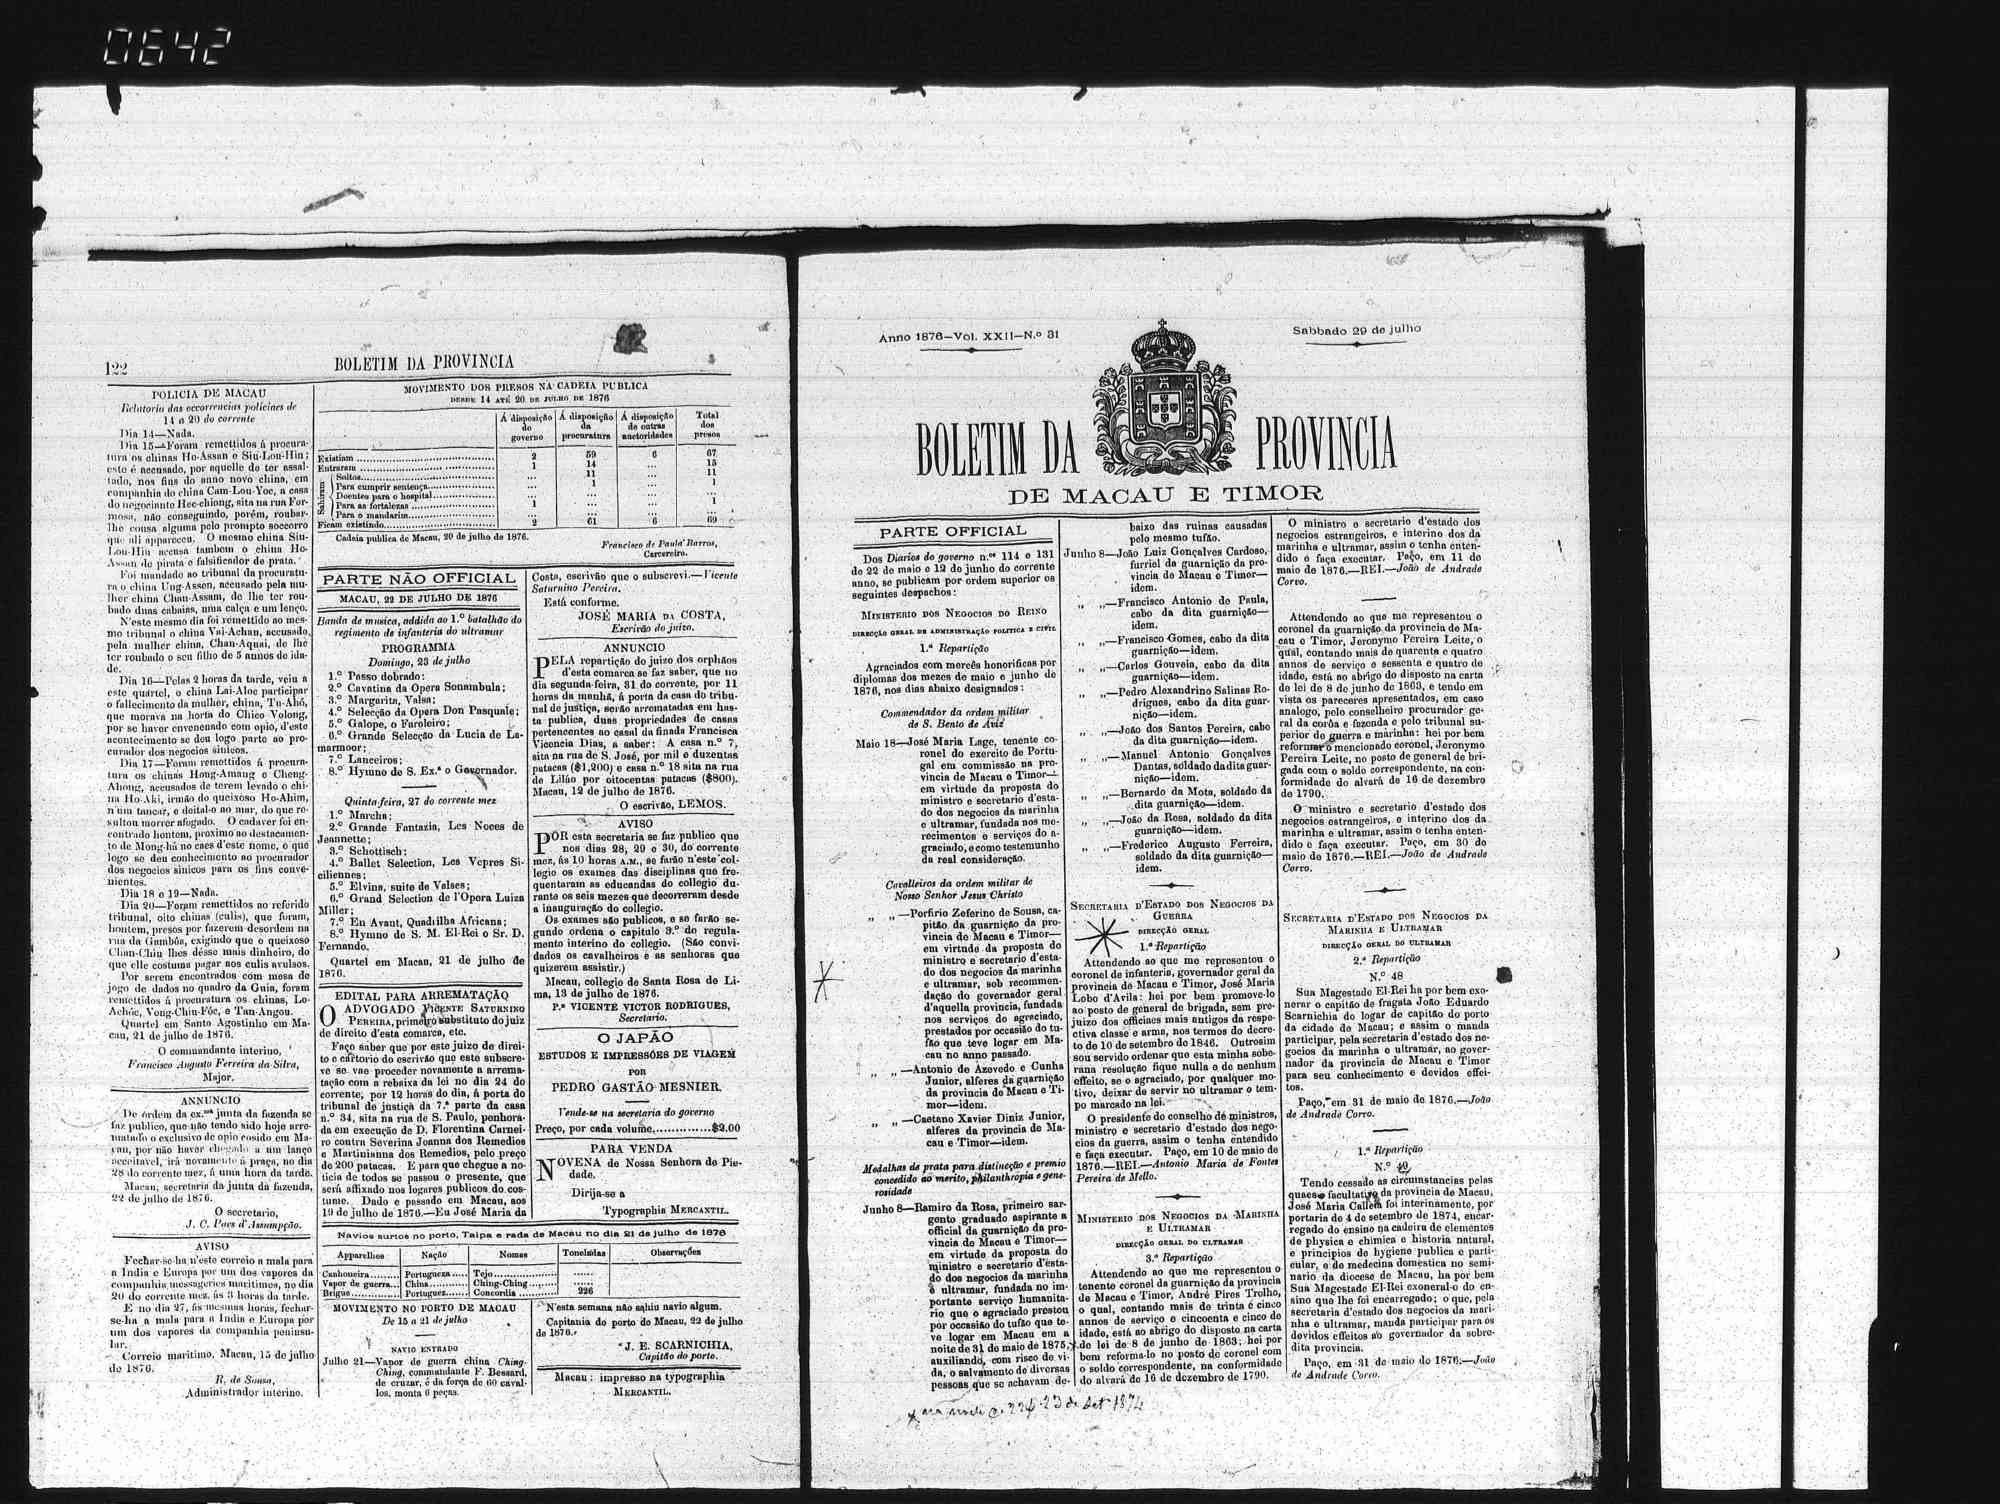 0642
122
BOLETIM DA PROVINCIA
POLICIA DE MACAU
Relatorio das occorrencias policiaes de
14 a 20 do corrente
Dia 14—Nada.
Dia 15—Foram remettidos á procura-
tura os chinas Ho-Assan e Siu-Lou-Hin;
este é accusado, por aquelle de ter assal-
tado, nos fins do anno novo china, em
companhia do china Cam-Lou-Yoc, a casa
do negociante Hee-chiong, sita na rua For-
mosa, não conseguindo, porém, roubar-
lhe cousa alguma pelo prompto soccorro
que ali appareceu. O mesmo china Siu-
Lou-Hin accusa tambem o china Ho-
Assan de pirata e falsificador de prata.
Foi mandado ao tribunal da procuratu-
ra o china Ung-Assen, accusado pela mu-
lher china Chan-Assam, de lhe ter rou-
bado duas cabaias, uma calça e um lenço.
N'este mesmo dia foi remettido ao mes-
mo tribunal o china Vai-Achan, accusado,
pela mulher china, Chan-Aquai, de lhe
ter roubado o seu filho de 5 annos de ida-
de.
Dia 16—Pelas 2 horas da tarde, veiu a
este quartel, o china Lai-Aloc participar
o fallecimento da mulher, china, Tu-Ahó,
que morava na horta do Chico Volong,
por se haver envenenado com opio, d'este
acontecimento se deu logo parte ao pro-
curador dos negocios sinicos.
Dia 17—Foram remettidos á procura-
tura os chinas Hong-Amang e Cheng-
Ahong, accusados de terem levado o chi-
na Ho-Aki, irmão do queixoso Ho-Ahim,
n'um tancar, e deital-o ao mar, do que re-
sultou morrer afogado. O cadaver foi en-
contrado hontem, proximo ao destacamen-
to de Mong-há no caes d'este nome, o que
logo se deu conhecimento ao procurador
dos negocios sinicos para os fins conve-
nientes.
Dia 18 e 19—Nada.
Dia 20—Foram remettidos no referido
tribunal, oito chinas (culis), que foram,
hontem, presos por fazerem desordem na
rua da Gambôa, exigindo que o queixoso
Chan-Chiu lhes désse mais dinheiro, do
que elle costuma pagar aos culis avulsos.
Por serem encontrados com mesa de
jogo de dados no quadro da Guia, foram
remettidos á procuratura os chinas, Lo-
Achóc, Vong-Chiu-Fóc, e Tan-Angou.
Quartel em Santo Agostinho em Ma-
cau, 21 de julho de 1876.
O commandante interino,
Francisco Augusto Ferreira da Silva,
Major.
ANNUNCIO
De ordem da ex.ma junta da fazenda se
faz publico, que não tendo sido hoje arre-
matado o exclusivo de opio cosido em Ma-
cau, por não haver chegado a um lanço
acceitavel, irá novamente á praça, no dia
28 do corrente mez, á uma hora da tarde.
Macau, secretaria da junta da fazenda,
22 de julho de 1876.
O secretario,
J. C. Paes d'Assumpção.
AVISO
Fechar-se-ha n'este correio a mala para
a India e Europa por um dos vapores da
companhia messageries maritimes, no dia
20 do corrente mez, ás 3 horas da tarde.
E no dia 27, ás mesmas horas, fechar-
se-ha a mala para a India e Europa por
um dos vapores da companhia peninsu-
lar.
Correio maritimo, Macau, 15 de julho
de 1876.
R. de Sousa,
Administrador interino.
MOVIMENTO DOS PRESOS NA CADEIA PUBLICA
DESDE 14 ATÉ 20 DE JULHO DE 1876
Á disposição do governo | Á disposição da procuratura | Á disposição de outras auctoridades | Total dos presos
Existiam 2 59 6 67
Entraram 1 14 ... 15
Sahiram
Soltos ... 11 ... 11
Para cumprir sentença ... 1 ... 1
Doentes para o hospital ... ... ... ...
Para as fortalezas 1 ... ... 1
Para o mandarim ... ... ... ...
Ficam existindo 2 61 6 69
Cadeia publica de Macau, 20 de julho de 1876.
Francisco de Paula Barros,
Carcereiro.
PARTE NÃO OFFICIAL
MACAU, 22 DE JULHO DE 1876
Banda de musica, addida ao 1.º batalhão do
regimento de infanteria do ultramar
PROGRAMMA
Domingo, 23 de julho
1.º Passo dobrado;
2.º Cavatina da Opera Sonambula;
3.º Margarita, Valsa;
4.º Selecção da Opera Don Pasquale;
5.º Galope, o Faroleiro;
6.º Grande Selecção da Lucia de La-
marmoor;
7.º Lanceiros;
8.º Hymno de S. Ex.ª o Governador.
Quinta feira, 27 do corrente mez
1.º Marcha;
2.º Grande Fantazia, Les Noces de
Jeannette;
3.º Schottisch;
4.º Ballet Selection, Les Vepres Si-
ciliennes;
5.º Elvina, suite de Valses;
6.º Grand Selection de l'Opera Luiza
Miller;
7.º En Avant, Quadilha Africana;
8.º Hymno de S. M. El-Rei o Sr. D.
Fernando.
Quartel em Macau, 21 de julho de
1876.
EDITAL PARA ARREMATAÇÃO
O ADVOGADO VICENTE SATURNINO
PEREIRA, primeiro substituto do juiz
de direito d'esta comarca, etc.
Faço saber que por este juizo de direi-
to e cartorio do escrivão que este subscre-
ve se vae proceder novamente a arrema-
tação com a rebaixa da lei no dia 24 do
corrente, por 12 horas do dia, á porta do
tribunal de justiça da 7.ª parte da casa
n.º 34, sita na rua de S. Paulo, penhora-
da em execução de D. Florentina Carnei-
ro contra Severina Joanna dos Remedios
e Martinianna dos Remedios, pelo preço
de 200 patacas. E para que chegue a no-
ticia de todos se passou o presente, que
será affixado nos logares publicos do cos-
tume. Dado e passado em Macau, aos
19 de julho de 1876.—Eu José Maria da
Costa, escrivão que o subscrevi.—Vicente
Saturnino Pereira.
Está conforme.
JOSÉ MARIA DA COSTA,
Escrivão do juizo.
ANNUNCIO
PELA repartição do juizo dos orphãos
d'esta comarca se faz saber, que no
dia segunda-feira, 31 do corrente, por 11
horas da manhã, á porta da casa do tribu-
nal de justiça, serão arrematadas em has-
ta publica, duas propriedades de casas
pertencentes ao casal da finada Francisca
Vicencia Dias, a saber: A casa n.º 7,
sita na rua de S. José, por mil e duzentas
patacas ($1,200) e casa n.º 18 sita na rua
de Liláo por oitocentas patacas ($800).
Macau, 12 de julho de 1876.
O escrivão, LEMOS.
AVISO
POR esta secretaria se faz publico que
nos dias 28, 29 e 30, do corrente
mez, ás 10 horas A.M., se farão n'este col-
legio os exames das disciplinas que fre-
quentaram as educandas do collegio du-
rante os seis mezes que decorreram desde
a inauguração do collegio.
Os exames são publicos, e se farão se-
gundo ordena o capitulo 9.º do regula-
mento interino do collegio. (São convi-
dados os cavalheiros e as senhoras que
quizerem assistir.)
Macau, collegio de Santa Rosa de Li-
ma, 13 de julho de 1876.
P.e VICENTE VICTOR RODRIGUES,
Secretario.
O JAPÃO
ESTUDOS E IMPRESSÕES DE VIAGEM
POR
PEDRO GASTÃO MESNIER.
Vende-se na secretaria do governo
Preço, por cada volume..............$2.00
PARA VENDA
NOVENA de Nossa Senhora de Pie-
dade.
Dirija-se a
Typographia MERCANTIL.
Navios surtos no porto, Taipa e rada de Macau no dia 21 de julho de 1876
Apparelhos | Nação | Nomes | Toneladas | Observações
Canhoneira | Portugueza | Tejo | ......
Vapor de guerra | China | Ching-Ching | ......
Brigue | Portuguez | Concordia | 226
MOVIMENTO NO PORTO DE MACAU
De 15 a 21 de julho
NAVIO ENTRADO
Julho 21—Vapor de guerra china Ching-
Ching, commandante F. Bessard,
de cruzar, é da força de 60 caval-
los, monta 6 peças.
N'esta semana não sahiu navio algum.
Capitania do porto de Macau, 22 de julho
de 1876.
J. E. SCARNICHIA,
Capitão do porto.
Macau: impresso na typographia
MERCANTIL.
Anno 1876—Vol. XXII—N.º 31
Sabbado 29 de julho
BOLETIM DA PROVINCIA
DE MACAU E TIMOR
PARTE OFFICIAL
Dos Diarios do governo n.os 114 e 131
de 22 de maio e 12 de junho do corrente
anno, se publicam por ordem superior os
seguintes despachos:
MINISTERIO DOS NEGOCIOS DO REINO
DIRECÇÃO GERAL DE ADMINISTRAÇÃO POLITICA E CIVIL
1.ª Repartição
Agraciados com mercês honorificas por
diplomas dos mezes de maio e junho de
1876, nos dias abaixo designados:
Commendador da ordem militar
de S. Bento de Aviz
Maio 18—José Maria Lage, tenente co-
ronel do exercito de Portu-
gal em commissão na pro-
vincia de Macau e Timor—
em virtude da proposta do
ministro e secretario d'esta-
do dos negocios da marinha
e ultramar, fundada nos me-
recimentos e serviços do a-
graciado, e como testemunho
da real consideração.
Cavalleiros da ordem militar de
Nosso Senhor Jesus Christo
„ „—Porfirio Zeferino de Sousa, ca-
pitão da guarnição da pro-
vincia de Macau e Timor—
em virtude da proposta do
ministro e secretario d'esta-
do dos negocios da marinha
e ultramar, sob recommen-
dação do governador geral
d'aquella provincia, fundada
nos serviços do agraciado,
prestados por occasião do tu-
fão que teve logar em Ma-
cau no anno passado.
„ „—Antonio de Azevedo e Cunha
Junior, alferes da guarnição
da provincia de Macau e Ti-
mor—idem.
„ „—Caetano Xavier Diniz Junior,
alferes da provincia de Ma-
cau e Timor—idem.
Medalhas de prata para distincção e premio
concedido ao merito, philanthropia e gene-
rosidade
Junho 8—Ramiro da Rosa, primeiro sar-
gento graduado aspirante a
official da guarnição da pro-
vincia de Macau e Timor—
em virtude da proposta do
ministro e secretario d'esta-
do dos negocios da marinha
e ultramar, fundada no im-
portante serviço humanita-
rio que o agraciado prestou
por occasião do tufão que te-
ve logar em Macau em a
noite de 31 de maio de 1875,
auxiliando, com risco de vi-
da, o salvamento de diversas
pessoas que se achavam de-
baixo das ruinas causadas
pelo mesmo tufão.
Junho 8—João Luiz Gonçalves Cardoso,
furriel da guarnição da pro-
vincia de Macau e Timor—
idem.
„ „—Francisco Antonio de Paula,
cabo da dita guarnição—
idem.
„ „—Francisco Gomes, cabo da dita
guarnição—idem.
„ „—Carlos Gouveia, cabo da dita
guarnição—idem.
„ „—Pedro Alexandrino Salinas Ro-
drigues, cabo da dita guar-
nição—idem.
„ „—João dos Santos Pereira, cabo
da dita guarnição—idem.
„ „—Manuel Antonio Gonçalves
Dantas, soldado da dita guar-
nição—idem.
„ „—Bernardo da Mota, soldado da
dita guarnição—idem.
„ „—João da Rosa, soldado da dita
guarnição—idem.
„ „—Frederico Augusto Ferreira,
soldado da dita guarnição—
idem.
SECRETARIA D'ESTADO DOS NEGOCIOS DA
GUERRA
DIRECÇÃO GERAL
1.ª Repartição
Attendendo ao que me representou o
coronel de infanteria, governador geral da
provincia de Macau e Timor, José Maria
Lobo d'Avila: hei por bem promove-lo
ao posto de general de brigada, sem pre-
juizo dos officiaes mais antigos da respe-
ctiva classe e arma, nos termos do decre-
to de 10 de setembro de 1846. Outrosim
sou servido ordenar que esta minha sobe-
rana resolução fique nulla e de nenhum
effeito, se o agraciado, por qualquer mo-
tivo, deixar de servir no ultramar o tem-
po marcado na lei.
O presidente do conselho de ministros,
ministro e secretario d'estado dos nego-
cios da guerra, assim o tenha entendido
e faça executar. Paço, em 10 de maio de
1876.—REI.—Antonio Maria de Fontes
Pereira de Mello.
MINISTERIO DOS NEGOCIOS DA MARINHA
E ULTRAMAR
DIRECÇÃO GERAL DO ULTRAMAR
3.ª Repartição
Attendendo ao que me representou o
tenente coronel da guarnição da provincia
de Macau e Timor, André Pires Trolho,
o qual, contando mais de trinta e cinco
annos de serviço e cincoenta e cinco de
idade, está ao abrigo do disposto na carta
de lei de 8 de junho de 1863; hei por
bem reforma-lo no posto de coronel com
o soldo correspondente, na conformidade
do alvará de 16 de dezembro de 1790.
O ministro e secretario d'estado dos
negocios estrangeiros, e interino dos da
marinha e ultramar, assim o tenha enten-
dido e faça executar. Paço, em 11 de
maio de 1876.—REI.—João de Andrade
Corvo.
Attendendo ao que me representou o
coronel da guarnição da provincia de Ma-
cau e Timor, Jeronymo Pereira Leite, o
qual, contando mais de quarenta e quatro
annos de serviço e sessenta e quatro de
idade, está ao abrigo do disposto na carta
de lei de 8 de junho de 1863, e tendo em
vista os pareceres apresentados, em caso
analogo, pelo conselheiro procurador ge-
ral da corôa e fazenda e pelo tribunal su-
perior de guerra e marinha: hei por bem
reformar o mencionado coronel, Jeronymo
Pereira Leite, no posto de general de bri-
gada com o soldo correspondente, na con-
formidade do alvará de 16 de dezembro
de 1790.
O ministro e secretario d'estado dos
negocios estrangeiros, e interino dos da
marinha e ultramar, assim o tenha enten-
dido e faça executar. Paço, em 30 de
maio de 1876.—REI.—João de Andrade
Corvo.
SECRETARIA D'ESTADO DOS NEGOCIOS DA
MARINHA E ULTRAMAR
DIRECÇÃO GERAL DO ULTRAMAR
2.ª Repartição
N.º 48
Sua Magestade El-Rei ha por bem exo-
nerar o capitão de fragata João Eduardo
Scarnichia do logar de capitão do porto
da cidade de Macau; e assim o manda
participar, pela secretaria d'estado dos ne-
gocios da marinha e ultramar, ao gover-
nador da provincia de Macau e Timor
para seu conhecimento e devidos effei-
tos.
Paço, em 31 de maio de 1876.—João
de Andrade Corvo.
1.ª Repartição
N.º 49
Tendo cessado as circumstancias pelas
quaes o facultativo da provincia de Macau,
José Maria Callela foi interinamente, por
portaria de 4 de setembro de 1874, encar-
regado do ensino na cadeira de elementos
de physica e chimica e historia natural,
e principios de hygiene publica e parti-
cular, e de medecina domestica no semi-
nario da diocese de Macau, ha por bem
Sua Magestade El-Rei exoneral-o do en-
sino que lhe foi encarregado; o que, pela
secretaria d'estado dos negocios da mari-
nha e ultramar, manda participar para os
devidos effeitos ao governador da sobre-
dita provincia.
Paço, em 31 de maio de 1876.—João
de Andrade Corvo.
23 de Set 1874